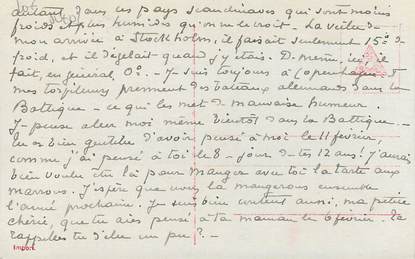 autant, dans ces pays scandinaves qui sont moins
froids et plus humides qu'on ne le croit. La veille de
mon arrivée à Stockholm, il faisait seulement 15° de
froid, et il dégelait quand j'y étais. De même, ici il
fait, en général, 0°. - Je suis toujours à Copenhague. Et
mes torpilleurs prennent des bateaux allemands dans la
Baltique - ce qui les met de mauvaise humeur.
Je pense aller moi même bientôt dans la Baltique. -
Tu es bien gentille d'avoir pensé à moi le 11 février,
comme j'ai pensé à toi le 8 - jour de tes 12 ans. J'aurais
bien voulu être là pour manger avec toi la tarte aux
marrons. J'espère que nous la mangerons ensemble
l'année prochaine. Je suis bien content aussi, ma petite
chérie, que tu aies pensé à ta maman le 6 février. Te
rappelles tu d'elle un peu ? -
Import.